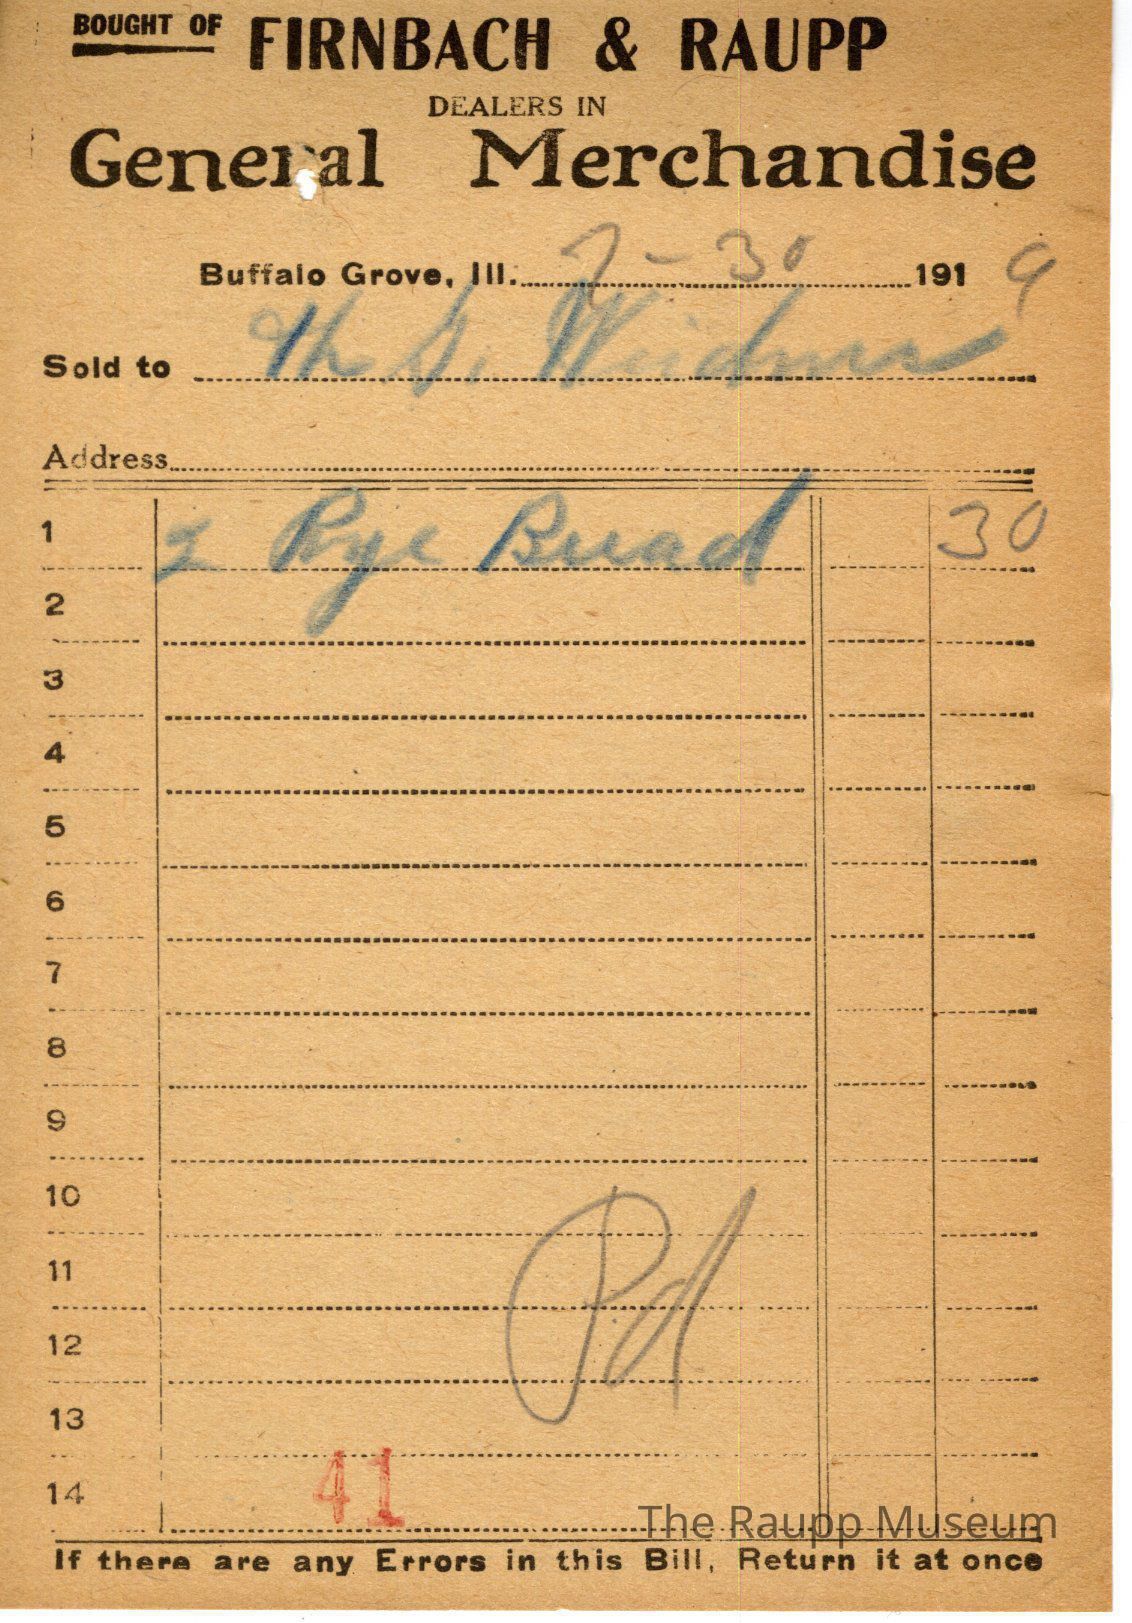 BOUGHT OF FIRNBACH & RAUPP
DEALERS IN
General Merchandise
Buffalo Grove, Ill. 7-30 1919
Sold to
Address
1 2 Rye Bread 30
2
3
4
5
6
7
8
9
10
11
12
13
Pd
14
41
The Raupp Museum
If there are any Errors in this Bill, Return it at once